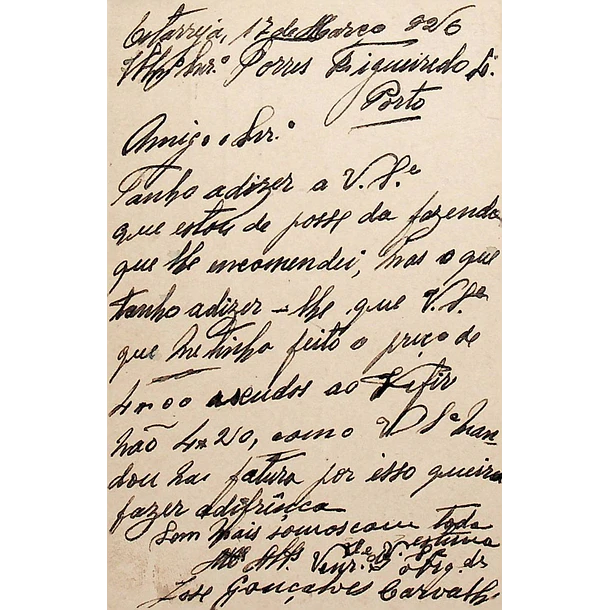 Estarreja, 17 de Março 926
Snr.º Porres Figueiredo L.
Porto
Amigo e Snr.º
Tanho adizer a V. S.ª
que estou de posse da fazenda
que lhe emcomendei, mas o que
tanho adizer-lhe que V. S.ª
que me tinha feito o preço de
4$00 ascudos ao
não 4$20, como V. S.ª man-
dou na fatura por isso queira
fazer adifrinça
Sem mais somos com toda
estima
de V. S.ª
Venr. e Obrg.do
José Gonçalves Carvalho